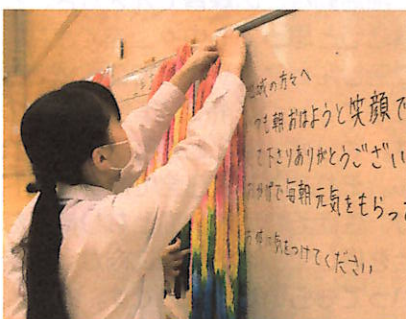 域の方々へ
つも朝おはようと笑顔で
て下さりありがとうござい
おかげで毎朝元気をもらっ
お体に気をつけてください